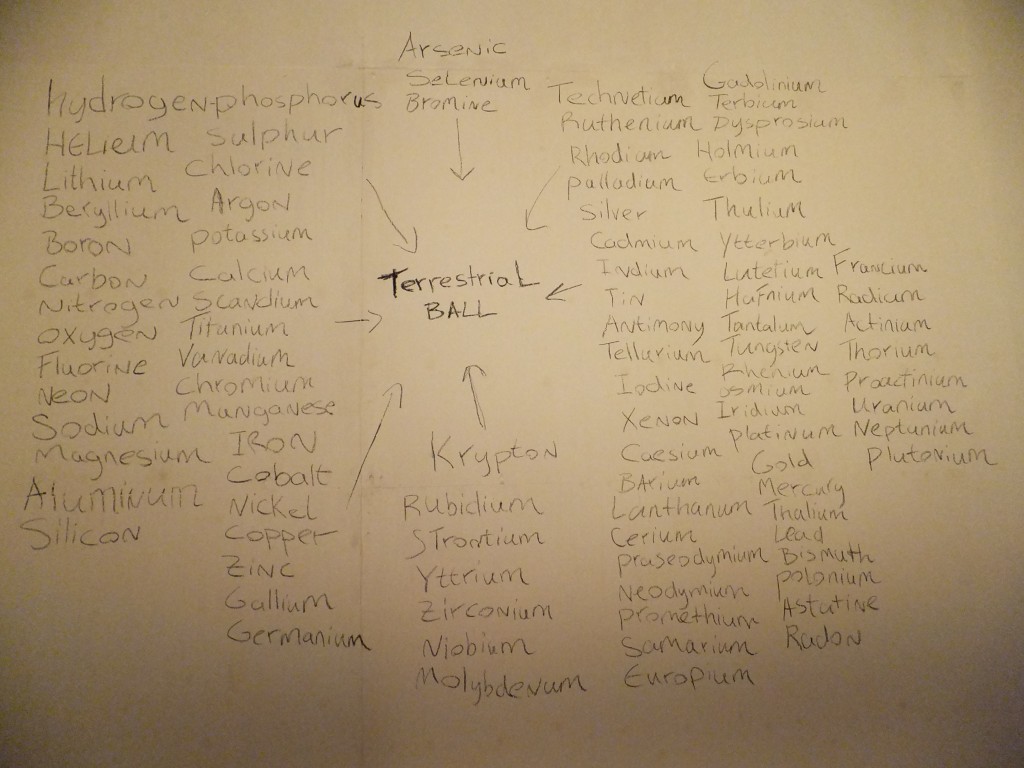 Arsenic
Selenium
Bromine
hydrogen-phosphorus
HELIEUM Sulphur
Lithium Chlorine
Beryllium Argon
BORON potassium
Carbon Calcium
Nitrogen Scandium
OXYGEN Titanium
Fluorine Vanadium
NEON Chromium
Sodium Manganese
Magnesium IRON
Cobalt
Aluminum Nickel
Silicon Copper
ZINC
Gallium
Germanium
Terrestrial
BALL
Krypton
Rubidium
STrontium
Yttrium
Zirconium
Niobium
Molybdenum
Technetium
Ruthenium
Rhodium
palladium
Silver
Cadmium
Indium
Tin
Antimony
Tellurium
Iodine
XENON
Caesium
BArium
Lanthanum
Cerium
praseodymium
Neodymium
promethium
Samarium
Europium
Gadolinium
Terbium
Dysprosium
Holmium
Erbium
Thulium
Ytterbium
Lutetium
Hafnium
Tantalum
Tungsten
Rhenium
osmium
Iridium
platinum
Gold
Mercury
Thalium
Lead
Bismuth
polonium
Astatine
Radon
Francium
Radium
Actinium
Thorium
Proactinium
Uranium
Neptunium
plutonium